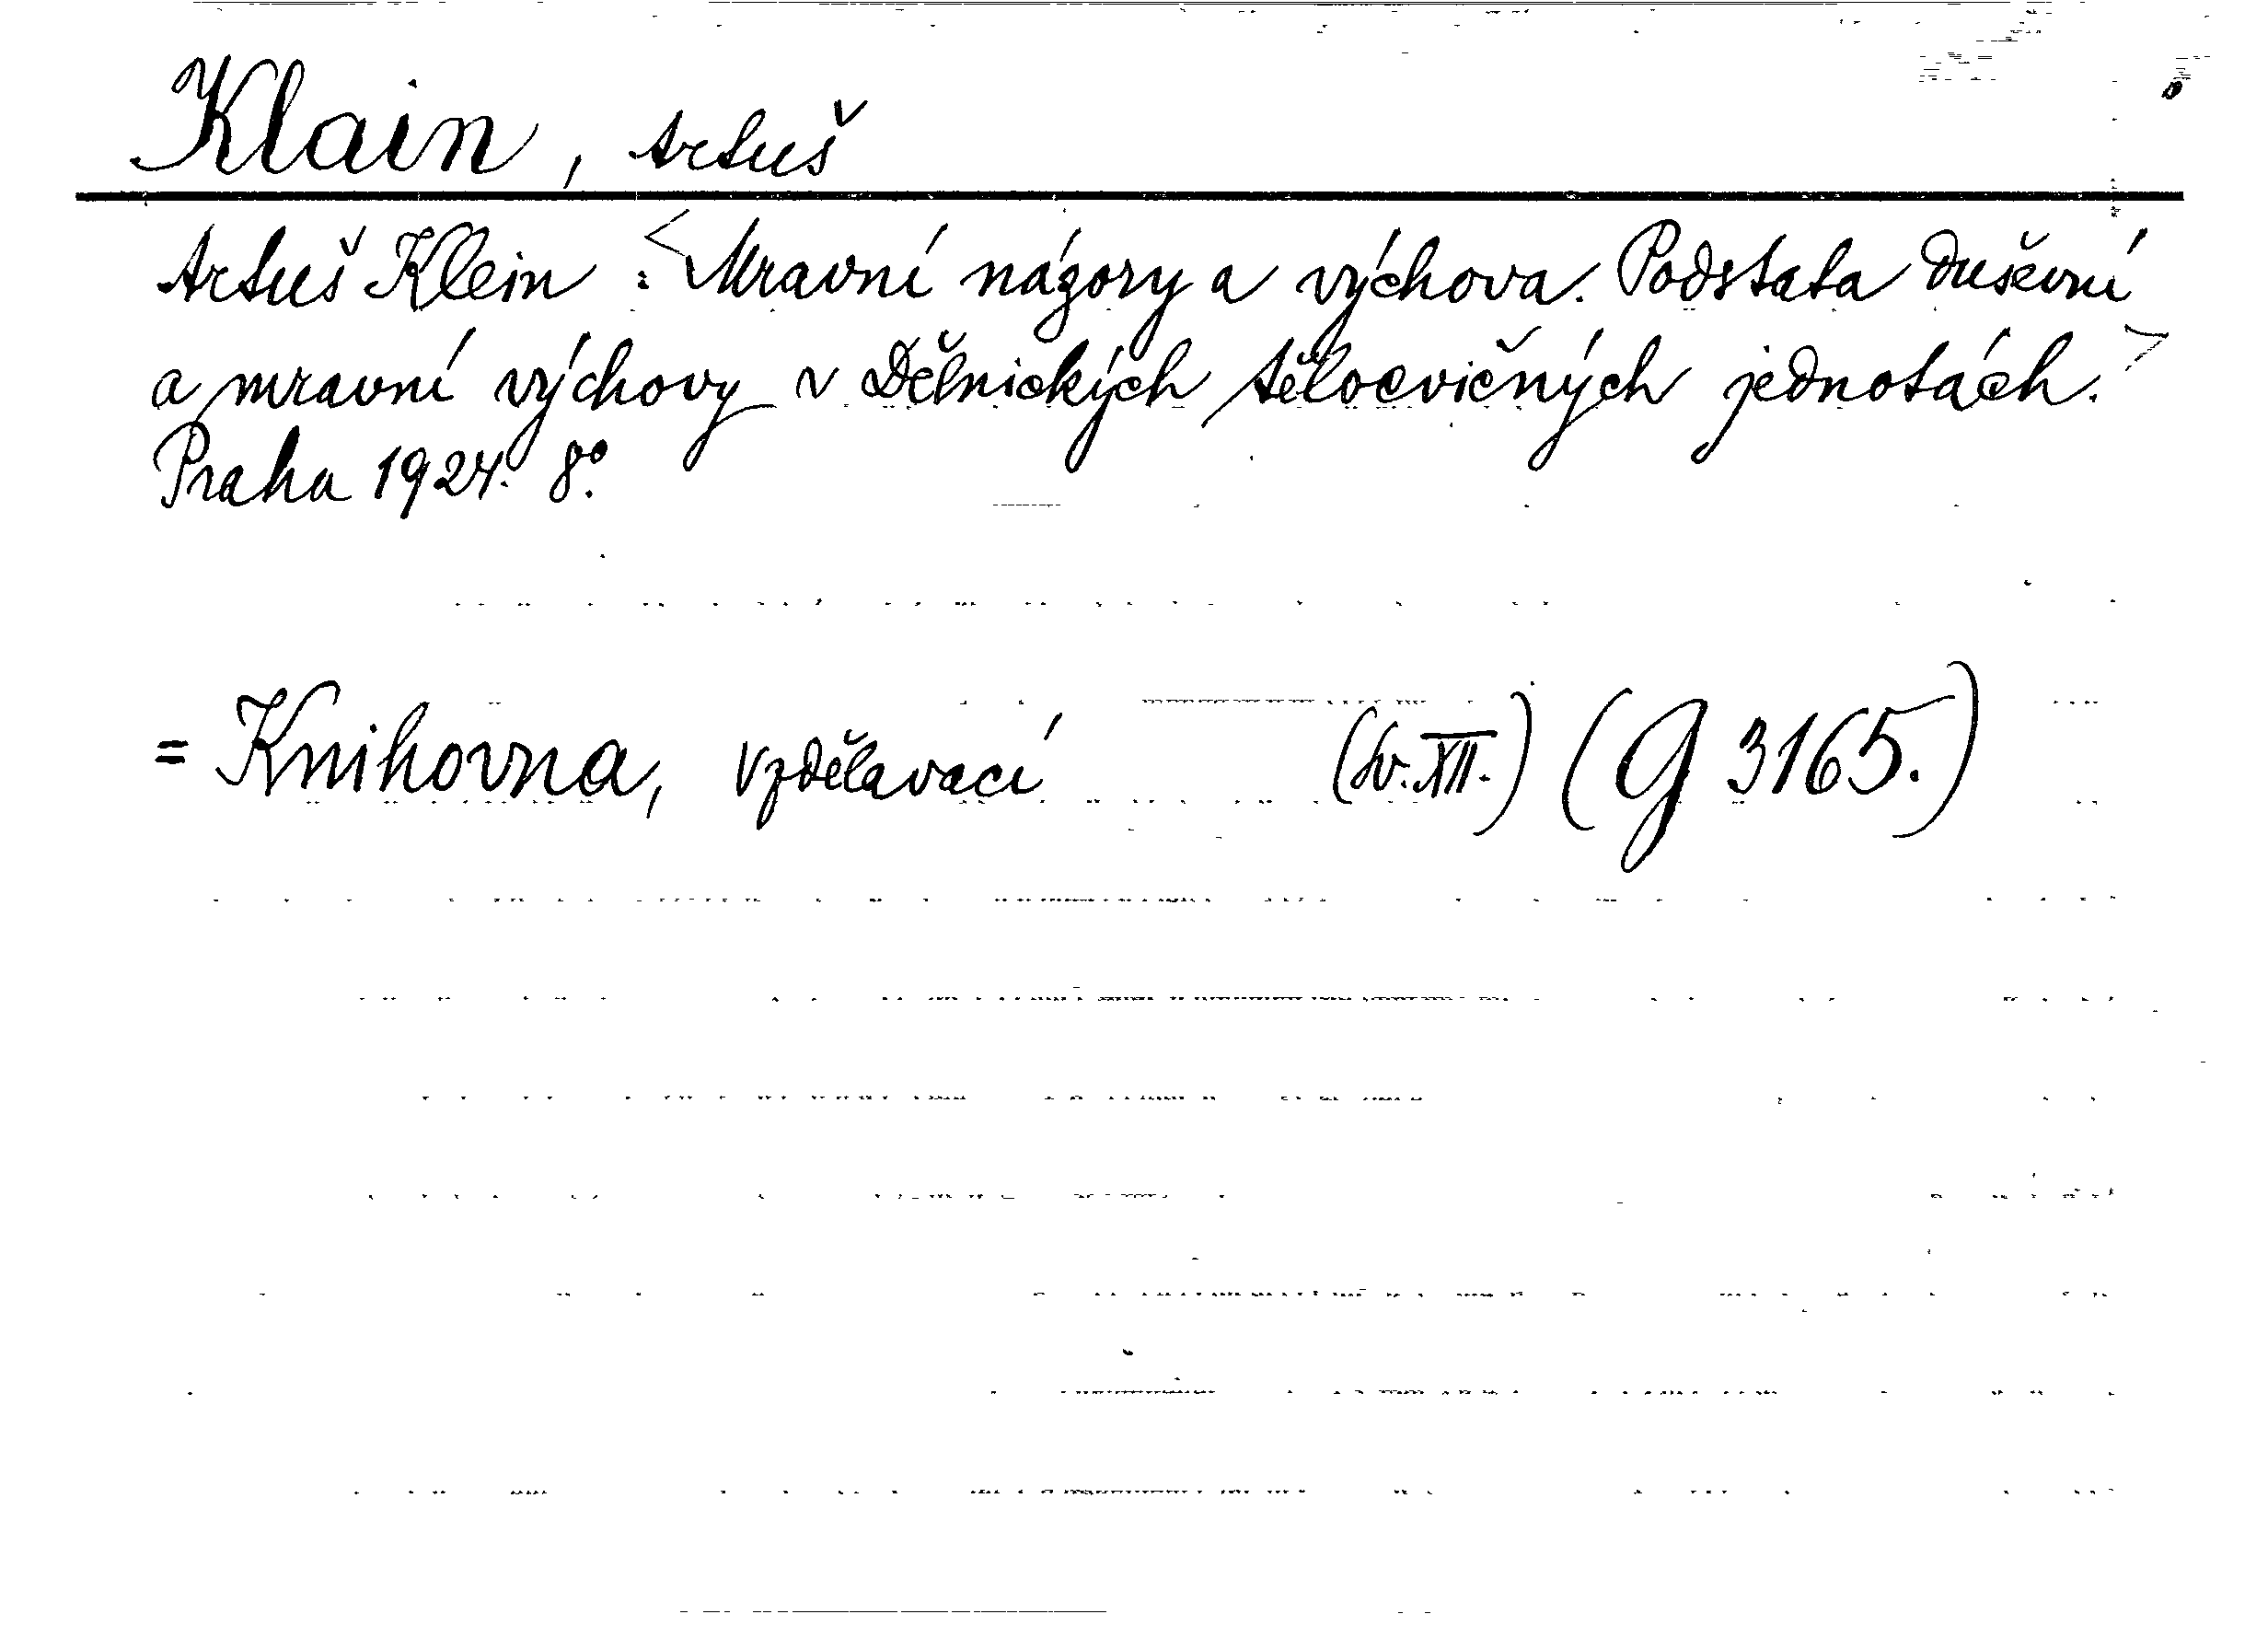 Klain, Artuš
Artuš Klein : <Mravní názory a výchova. Podstata duševní
a mravní výchovy v dělnických tělocvičných jednotách.>
Praha 1924. 8°.
= Knihovna, vzdělavací (Sv. XII.) (G 3165.)